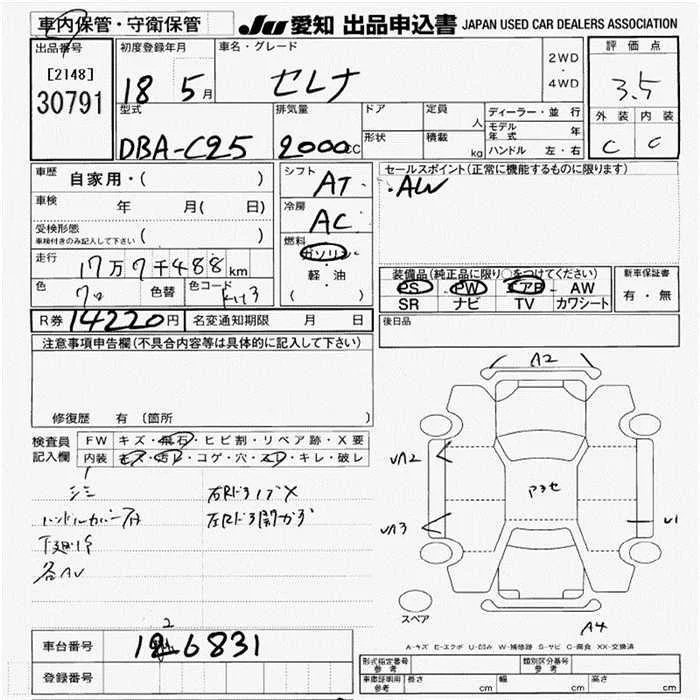 車内保管・守衛保管 JU 愛知 出品申込書 JAPAN USED CAR DEALERS ASSOCIATION
出品番号 初度登録年月 車名・グレード 評価点
[2148] 30791 18 5月 セレナ 2WD・4WD 3.5
型式 排気量 ドア 定員 人 ディーラー・並行 外装 内装
形状 積載 kg モデル年式 年
DBA-C25 2000cc ハンドル 左・右 C C
車歴 自家用・( ) シフト AT セールスポイント(正常に機能するものに限ります)
車検 年 月( 日) 冷房 AC ・AW
受検形態 車検付きのみ記入して下さい ( ) 燃料 ガソリン
走行 17万7千488km 軽・油 装備品(純正品に限り○をつけてください) 新車保証書
色 色替 色コード ( ) PS PW エアB AW 有・無
SR ナビ TV カワシート
R券 14220円 名変通知期限 月 日 後日品
注意事項申告欄(不具合内容等は具体的に記入して下さい)
A2
修復歴 有 〔箇所
検査員記入欄 FW キズ・飛石・ヒビ割・リペア跡・X要
内装 キズ・汚レ・コゲ・穴・スレ・キレ・破レ
UA2
UA3
U1
スペア
A4
車台番号 126831
A-キズ E-エクボ U-凹み W-補修跡 S-サビ C-腐食 XX-交換済
登録番号 形式指定番号 参考 類別区分番号 参考
車庫証明用 参考 長さ cm 幅 cm 高さ cm